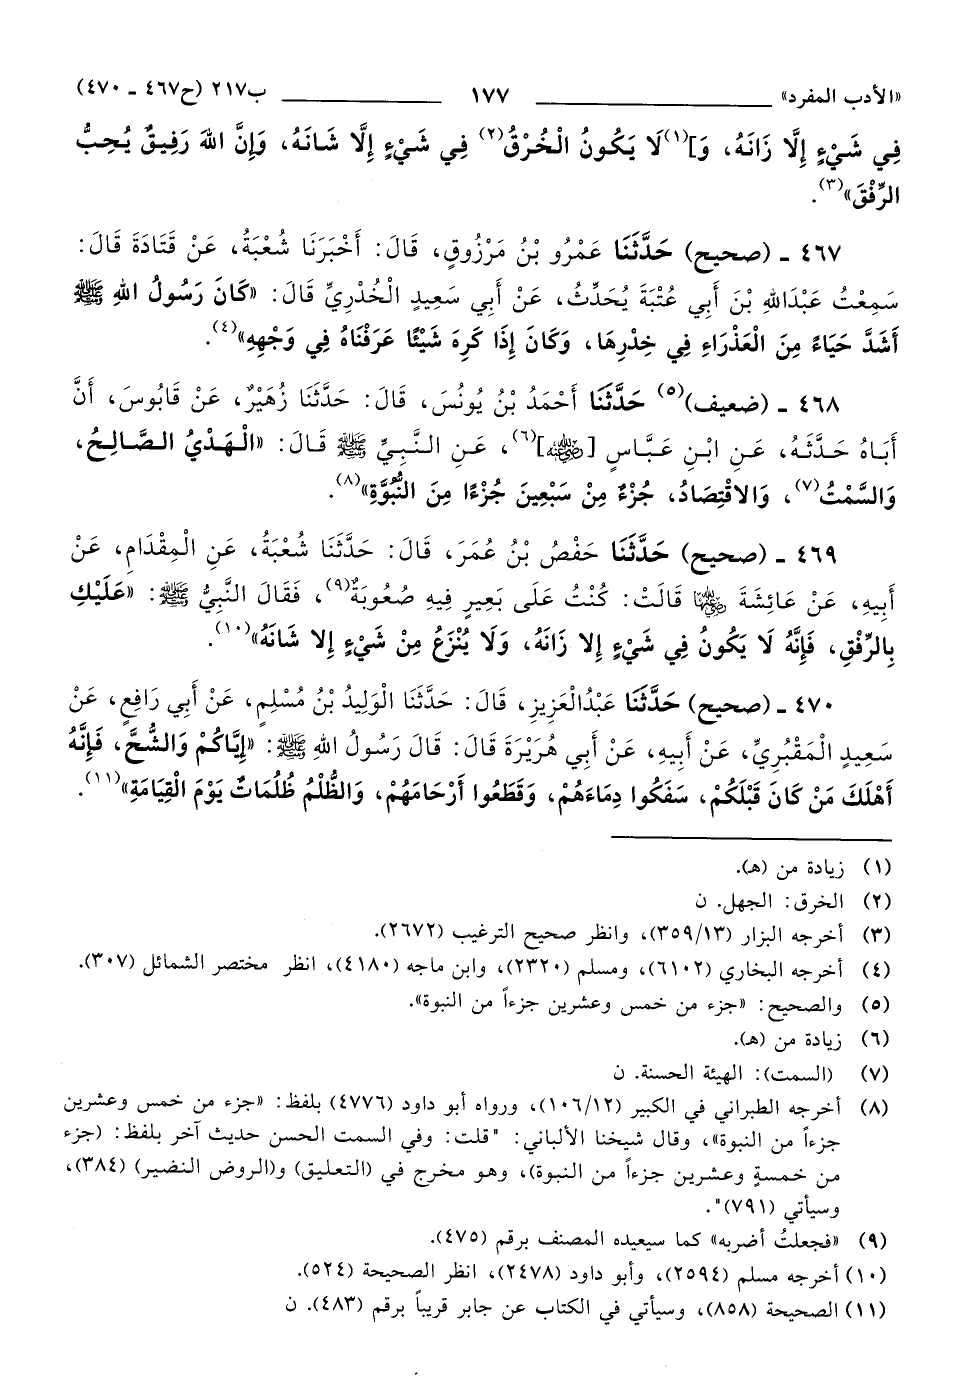 «الأدب المفرد» ١٧٧ ب٢١٧ (ح٤٦٧ - ٤٧٠)
فِي شَيْءٍ إِلَّا زَانَهُ، وَ](١)لَا يَكُونُ الْخُرْقُ(٢) فِي شَيْءٍ إِلَّا شَانَهُ، وَإِنَّ اللهَ رَفِيقٌ يُحِبُّ
الرِّفْقَ»(٣).
٤٦٧ ـ (صحيح) حَدَّثَنَا عَمْرُو بْنُ مَرْزُوقٍ، قَالَ: أَخْبَرَنَا شُعْبَةُ، عَنْ قَتَادَةَ قَالَ:
سَمِعْتُ عَبْدَاللهِ بْنَ أَبِي عُتْبَةَ يُحَدِّثُ، عَنْ أَبِي سَعِيدٍ الْخُدْرِيِّ قَالَ: «كَانَ رَسُولُ اللهِ ﷺ
أَشَدَّ حَيَاءً مِنَ الْعَذْرَاءِ فِي خِدْرِهَا، وَكَانَ إِذَا كَرِهَ شَيْئًا عَرَفْنَاهُ فِي وَجْهِهِ»(٤).
٤٦٨ ـ (ضعيف)(٥) حَدَّثَنَا أَحْمَدُ بْنُ يُونُسَ، قَالَ: حَدَّثَنَا زُهَيْرٌ، عَنْ قَابُوسَ، أَنَّ
أَبَاهُ حَدَّثَهُ، عَنِ ابْنِ عَبَّاسٍ [رضي الله عنه](٦)، عَنِ النَّبِيِّ ﷺ قَالَ: «الْهَدْيُ الصَّالِحُ،
وَالسَّمْتُ(٧)، وَالاقْتِصَادُ، جُزْءٌ مِنْ سَبْعِينَ جُزْءًا مِنَ النُّبُوَّةِ»(٨).
٤٦٩ ـ (صحيح) حَدَّثَنَا حَفْصُ بْنُ عُمَرَ، قَالَ: حَدَّثَنَا شُعْبَةُ، عَنِ الْمِقْدَامِ، عَنْ
أَبِيهِ، عَنْ عَائِشَةَ رضي الله عنها قَالَتْ: كُنْتُ عَلَى بَعِيرٍ فِيهِ صُعُوبَةٌ(٩)، فَقَالَ النَّبِيُّ ﷺ: «عَلَيْكِ
بِالرِّفْقِ، فَإِنَّهُ لَا يَكُونُ فِي شَيْءٍ إِلا زَانَهُ، وَلَا يُنْزَعُ مِنْ شَيْءٍ إِلا شَانَهُ»(١٠).
٤٧٠ ـ (صحيح) حَدَّثَنَا عَبْدُالْعَزِيزِ، قَالَ: حَدَّثَنَا الْوَلِيدُ بْنُ مُسْلِمٍ، عَنْ أَبِي رَافِعٍ، عَنْ
سَعِيدٍ الْمَقْبُرِيِّ، عَنْ أَبِيهِ، عَنْ أَبِي هُرَيْرَةَ قَالَ: قَالَ رَسُولُ اللهِ ﷺ: «إِيَّاكُمْ وَالشُّحَّ، فَإِنَّهُ
أَهْلَكَ مَنْ كَانَ قَبْلَكُمْ، سَفَكُوا دِمَاءَهُمْ، وَقَطَعُوا أَرْحَامَهُمْ، وَالظُّلْمُ ظُلُمَاتٌ يَوْمَ الْقِيَامَةِ»(١١).
(١) زيادة من (هـ).
(٢) الخرق: الجهل. ن
(٣) أخرجه البزار (٣٥٩/١٣)، وانظر صحيح الترغيب (٢٦٧٢).
(٤) أخرجه البخاري (٦١٠٢)، ومسلم (٢٣٢٠)، وابن ماجه (٤١٨٠)، انظر مختصر الشمائل (٣٠٧).
(٥) والصحيح: «جزء من خمس وعشرين جزءاً من النبوة».
(٦) زيادة من (هـ).
(٧) (السمت): الهيئة الحسنة. ن
(٨) أخرجه الطبراني في الكبير (١٠٦/١٢)، ورواه أبو داود (٤٧٧٦) بلفظ: «جزء من خمس وعشرين
جزءاً من النبوة»، وقال شيخنا الألباني: "قلت: وفي السمت الحسن حديث آخر بلفظ: (جزء
من خمسةٍ وعشرين جزءاً من النبوة)، وهو مخرج في (التعليق) و(الروض النضير) (٣٨٤)،
وسيأتي (٧٩١)".
(٩) «فجعلتُ أضربه» كما سيعيده المصنف برقم (٤٧٥).
(١٠) أخرجه مسلم (٢٥٩٤)، وأبو داود (٢٤٧٨)، انظر الصحيحة (٥٢٤).
(١١) الصحيحة (٨٥٨)، وسيأتي في الكتاب عن جابر قريباً برقم (٤٨٣). ن